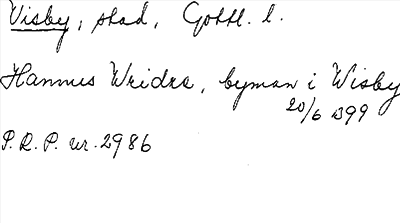 Visby, stad, Gottl. l.
Hannus Wridze, byman i Wisby
20/6 1399
P.R.P. nr. 2986